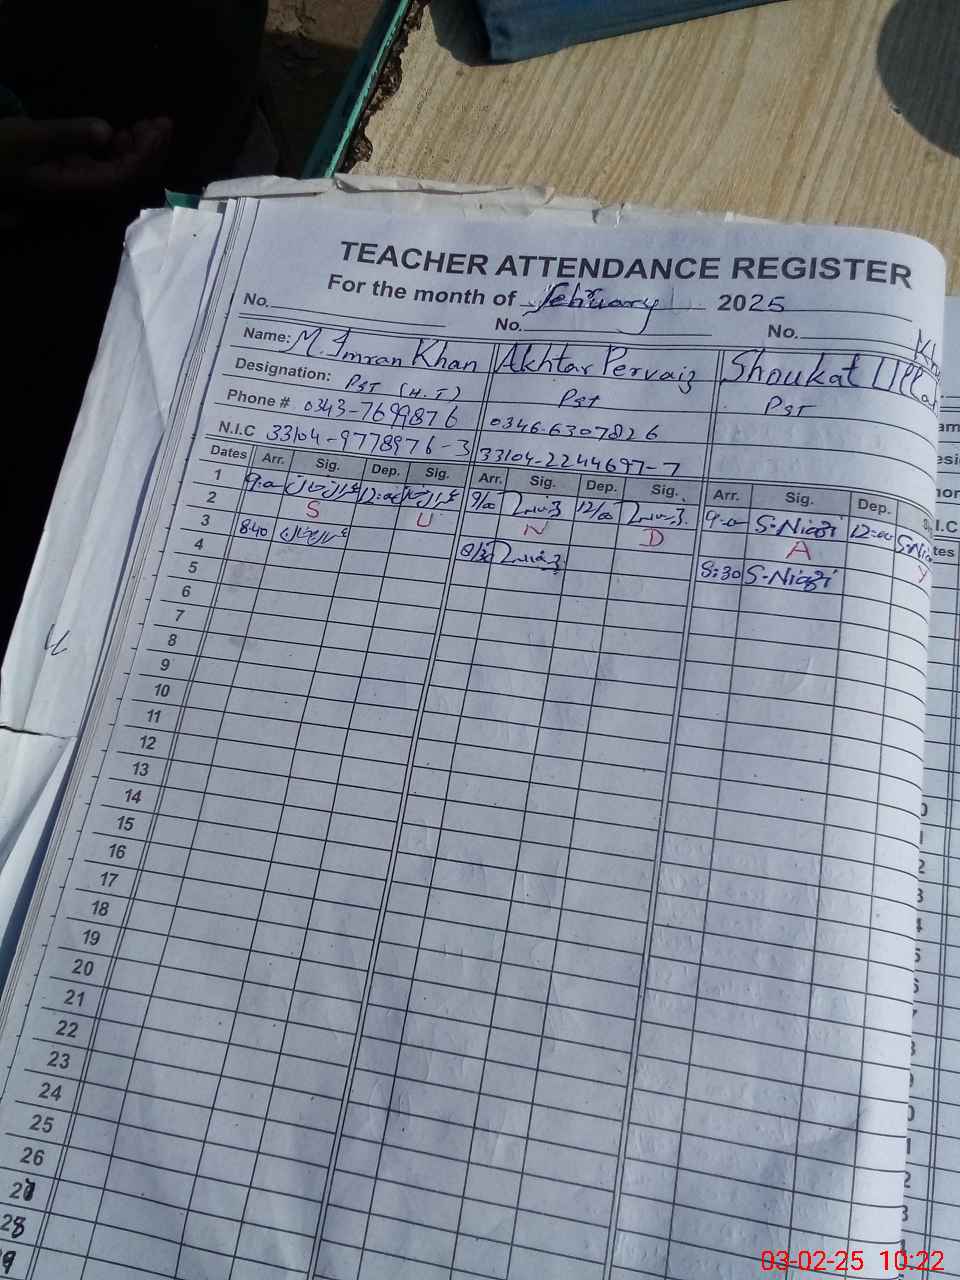 TEACHER ATTENDANCE REGISTER
For the month of February 2025
No. No. No.
Name: M. Imran Khan Akhtar Pervaiz Shoukat Ullah
Designation: PST (H.T) PST PST
Phone # 0343-7699876 0346-6307826
N.I.C 33104-9778976-3 33104-2244697-7
Dates Arr. Sig. Dep. Sig. Arr. Sig. Dep. Sig. Arr. Sig. Dep.
1 9:0 عمران خان 12:00 عمران خان 9/00 12/00 9-0 S.Niazi 12:00 S.Nia
2 S U N D A Y
3 8:40 عمران خان 8:30 S.Niazi
4
5
6
7
8
9
10
11
12
13
14
15
16
17
18
19
20
21
22
23
24
25
26
27
28
03-02-25 10:22